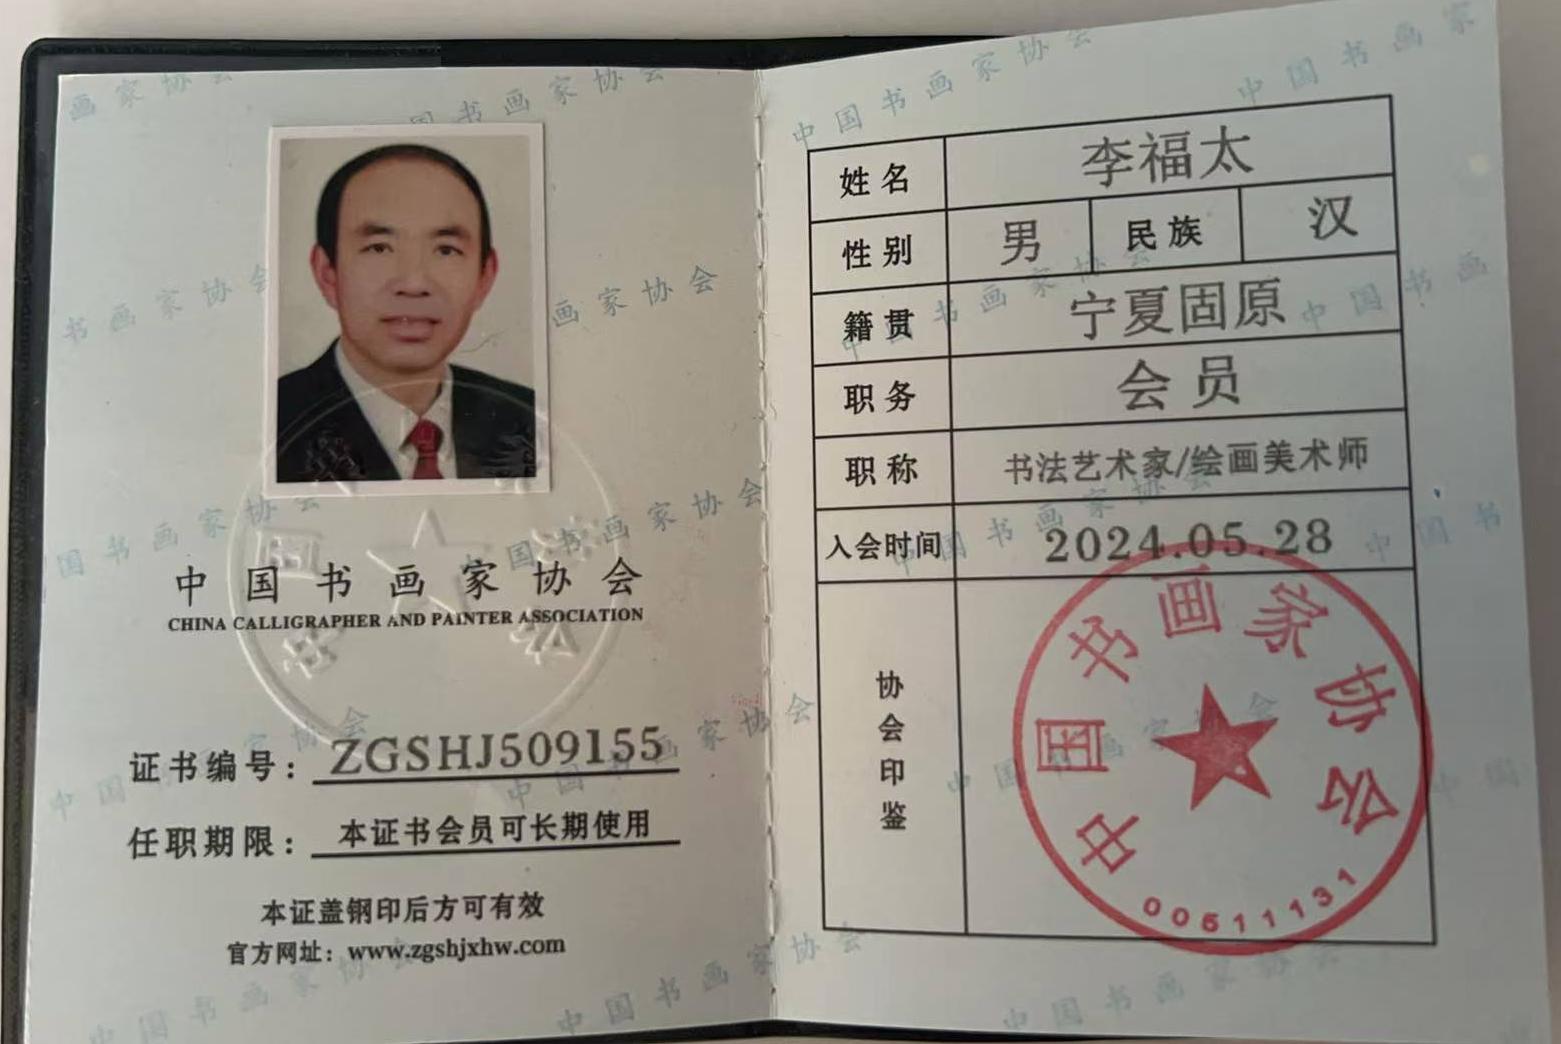 中国书画家协会
CHINA CALLIGRAPHER AND PAINTER ASSOCIATION
证书编号：ZGSHJ509155
任职期限：本证书会员可长期使用
本证盖钢印后方可有效
官方网址：www.zgshjxhw.com
姓名 李福太
性别 男 民族 汉
籍贯 宁夏固原
职务 会员
职称 书法艺术家/绘画美术师
入会时间 2024.05.28
协会印鉴
中国书画家协会
00511131